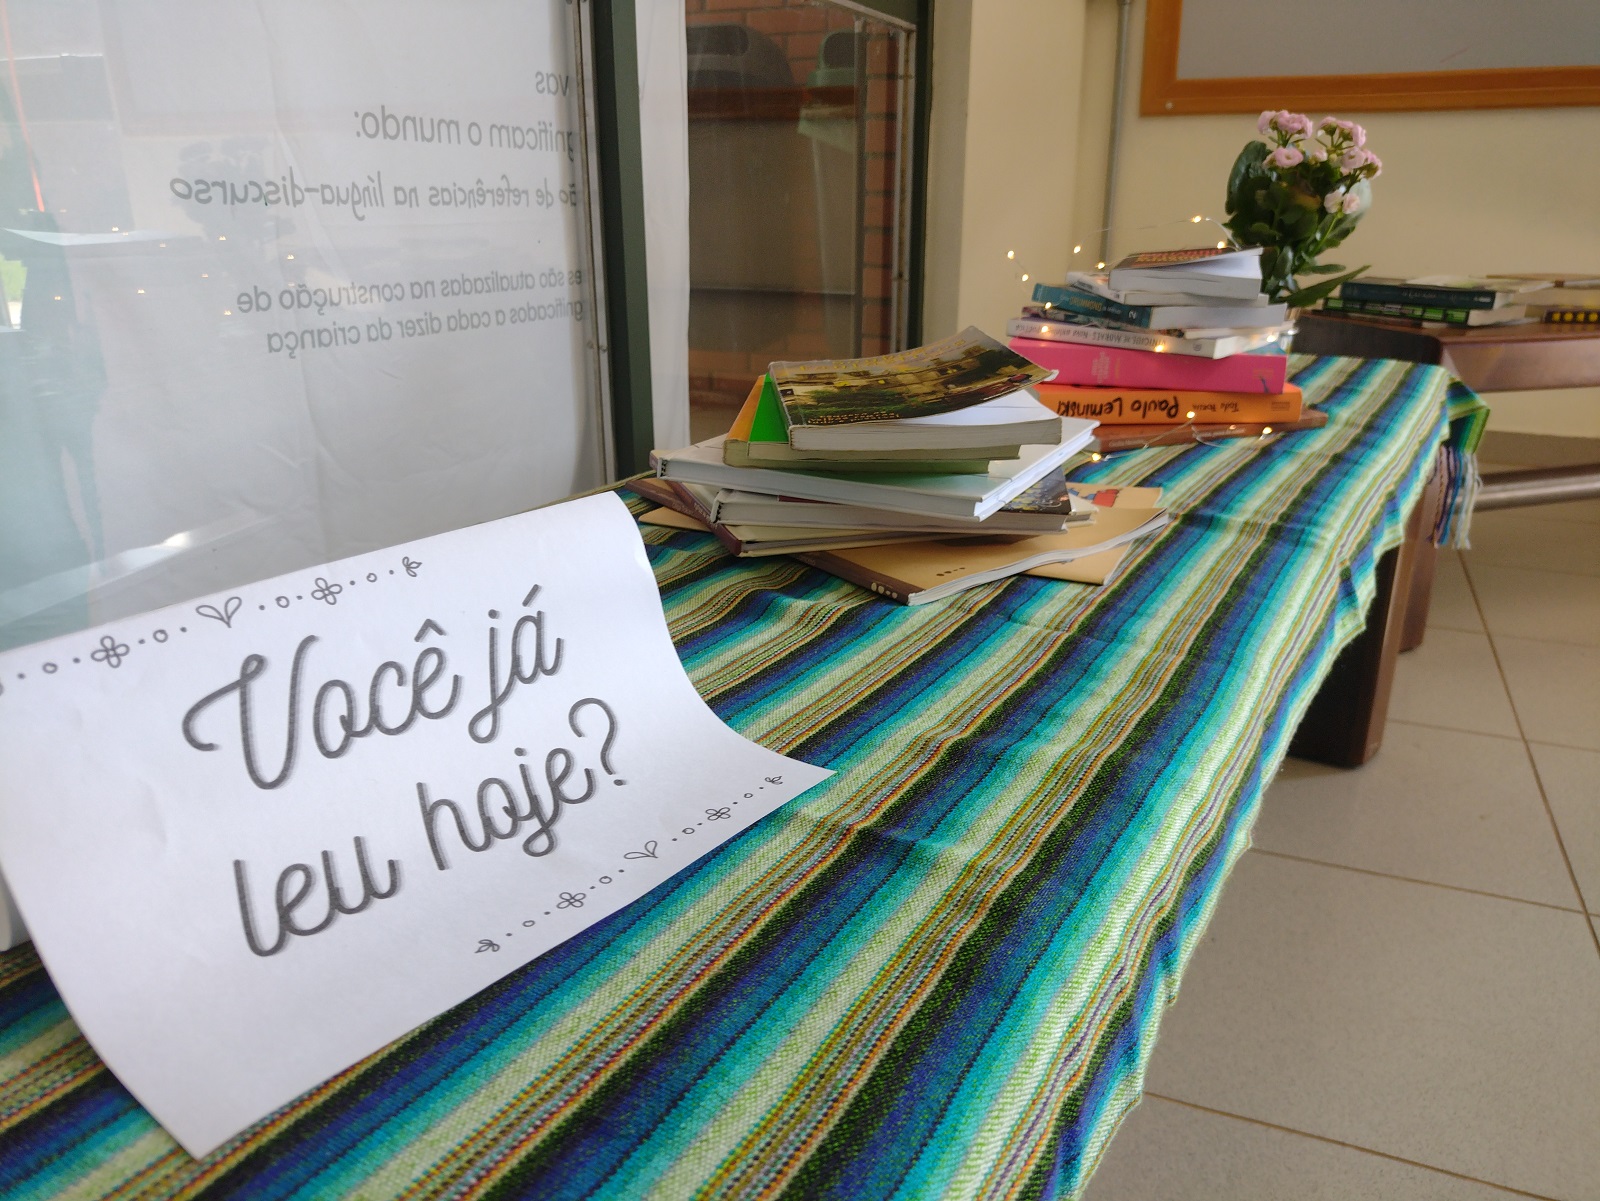 vas
gnificam o mundo:
ão de referências na língua-discurso
es são atualizadas na construção de
gnificados a cada dizer da criança
Você já
leu hoje?
VINICIUS DE MORAES
Toda Poesia Paulo Leminski